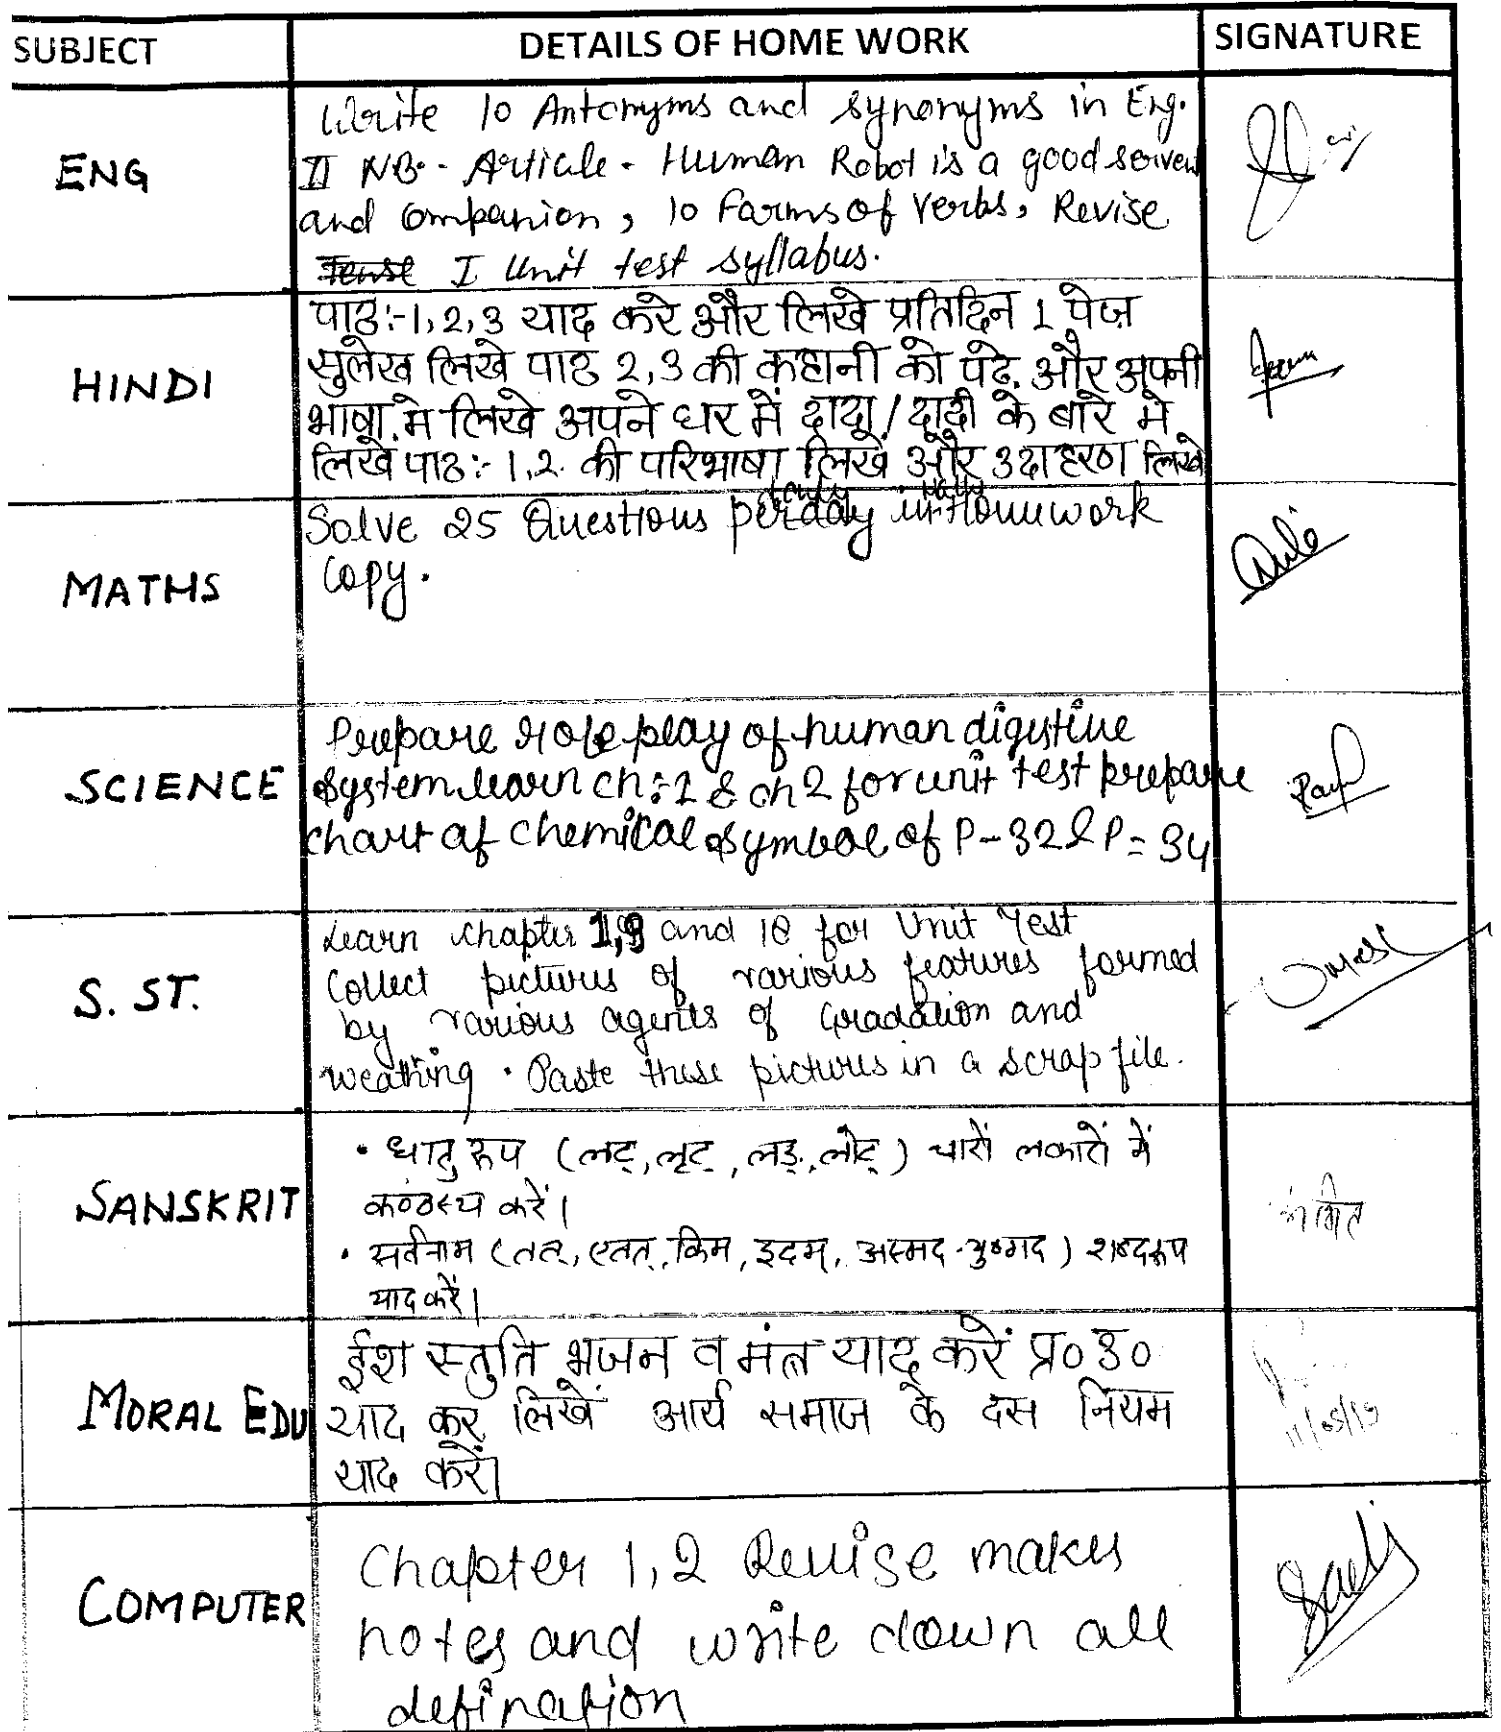 SUBJECT DETAILS OF HOME WORK SIGNATURE
ENG
Write 10 Antonyms and synonyms in Eng.
II NB.- Article - Human Robot is a good servent
and Companion, 10 Forms of Verbs, Revise
Tense I Unit test syllabus.
HINDI
पाठ:-1,2,3 याद करे और लिखे प्रतिदिन 1 पेज
सुलेख लिखे पाठ 2,3 की कहानी को पढे. और अपनी
भाषा.मे लिखे अपने घर में दादा/दादी के बारे मे
लिखे पाठ:- 1,2. की परिभाषा लिखे और उदाहरण लिखे
MATHS
Solve 25 Questions per day in Homework
Copy.
SCIENCE
Prepare role play of human digistive
system learn ch:1 & ch 2 for unit test prepare
chart of chemical symbol of P-32 & P=34
S. ST.
Learn chapter 1,9 and 10 for Unit Test
Collect pictures of various features formed
by various agents of Gradation and
weathing. Paste these pictures in a scrap file.
SANSKRIT
• धातु रूप (लट्, लृट्, लङ्, लोट्) चारों लकारों में
कण्ठस्थ करें।
• सर्वनाम (तत्, एतत्, किम, इदम्, अस्मद-युष्मद) शब्दरूप
याद करें।
MORAL EDU
ईश स्तुति भजन व मंत्र याद करें प्र० उ०
याद कर लिखें आर्य समाज के दस नियम
याद करें।
11/05/19
COMPUTER
Chapter 1,2 Revise makes
notes and write down all
defination